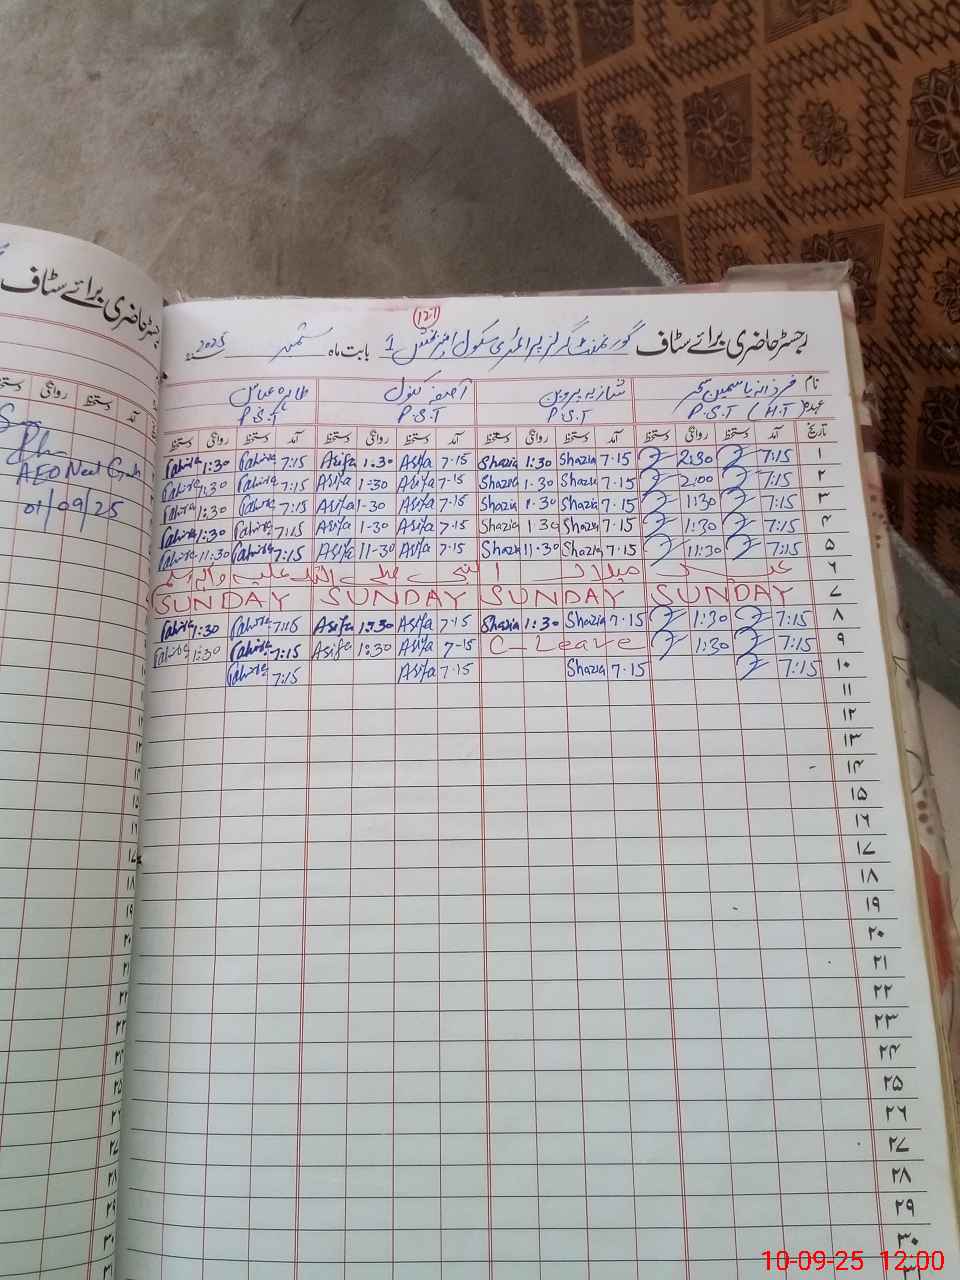 برائے سٹاف
رجسٹر حاضری برائے سٹاف
AEO
01/09/25
121
رجسٹر حاضری برائے سٹاف گورنمنٹ گرلز پرائمری سکول 1 بابت ماہ ستمبر 2025
نام شازیہ پروین آصفہ کنول طاہرہ عباس
عہدہ P.S.T (H.T) P.S.T P.S.T P.S.T
تاریخ آمد دستخط روانگی دستخط آمد دستخط روانگی دستخط آمد دستخط روانگی دستخط آمد دستخط روانگی دستخط
۱ 7:15 2:30 7·15 Shazia 1:30 Shazia 7·15 Asifa 1·30 Asifa 7:15 Tahira 1:30 Tahira
۲ 7:15 2:00 7·15 Shazia 1·30 Shazia 7·15 Asifa 1·30 Asifa 7:15 Tahira 1:30 Tahira
۳ 7:15 1:30 7·15 Shazia 1·30 Shazia 7·15 Asifa 1·30 Asifa 7:15 Tahira 1:30 Tahira
۴ 7:15 1:30 7·15 Shazia 1:30 Shazia 7·15 Asifa 1-30 Asifa 7:15 Tahira 1:30 Tahira
۵ 7:15 11:30 7·15 Shazia 11-30 Shazia 7·15 Asifa 11-30 Asifa 7:15 Tahira 11:30 Tahira
۶ عید میلاد النبی صلی اللہ علیہ وآلہ وسلم
۷ SUNDAY SUNDAY SUNDAY SUNDAY
۸ 7:15 1:30 7·15 Shazia 1:30 Shazia 7·15 Asifa 1:30 Asifa 7:15 Tahira 1:30 Tahira
۹ 7:15 1:30 C-Leave 7-15 Asifa 1:30 Asifa 7:15 Tahira 1:30 Tahira
۱۰ 7:15 7·15 Shazia 7·15 Asifa 7:15 Tahira
۱۱
۱۲
۱۳
۱۴
۱۵
۱۶
۱۷
۱۸
۱۹
۲۰
۲۱
۲۲
۲۳
۲۴
۲۵
۲۶
۲۷
۲۸
۲۹
۳۰
۳۱
10-09-25 12:00